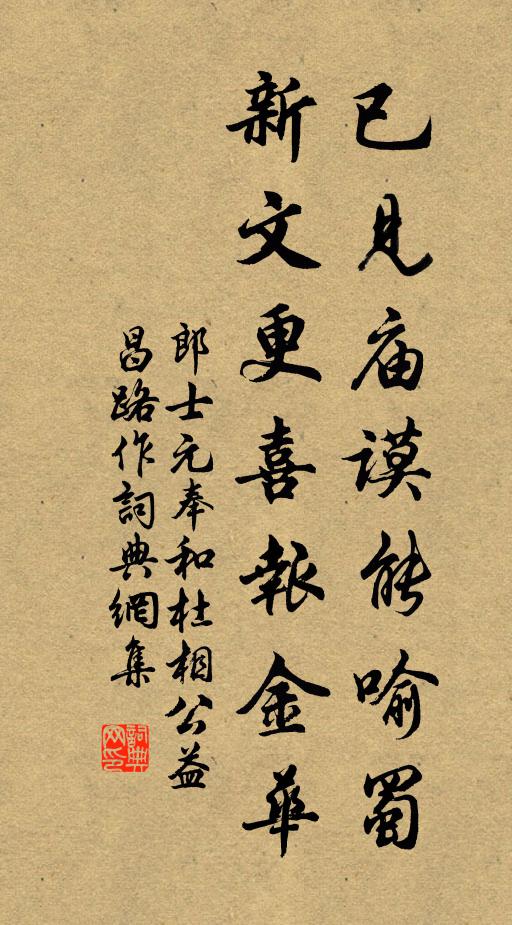 已見庙謨能喻蜀
新文更喜報金華
郎士元奉和杜相公益
昌路作詞典網集
詞典
网印